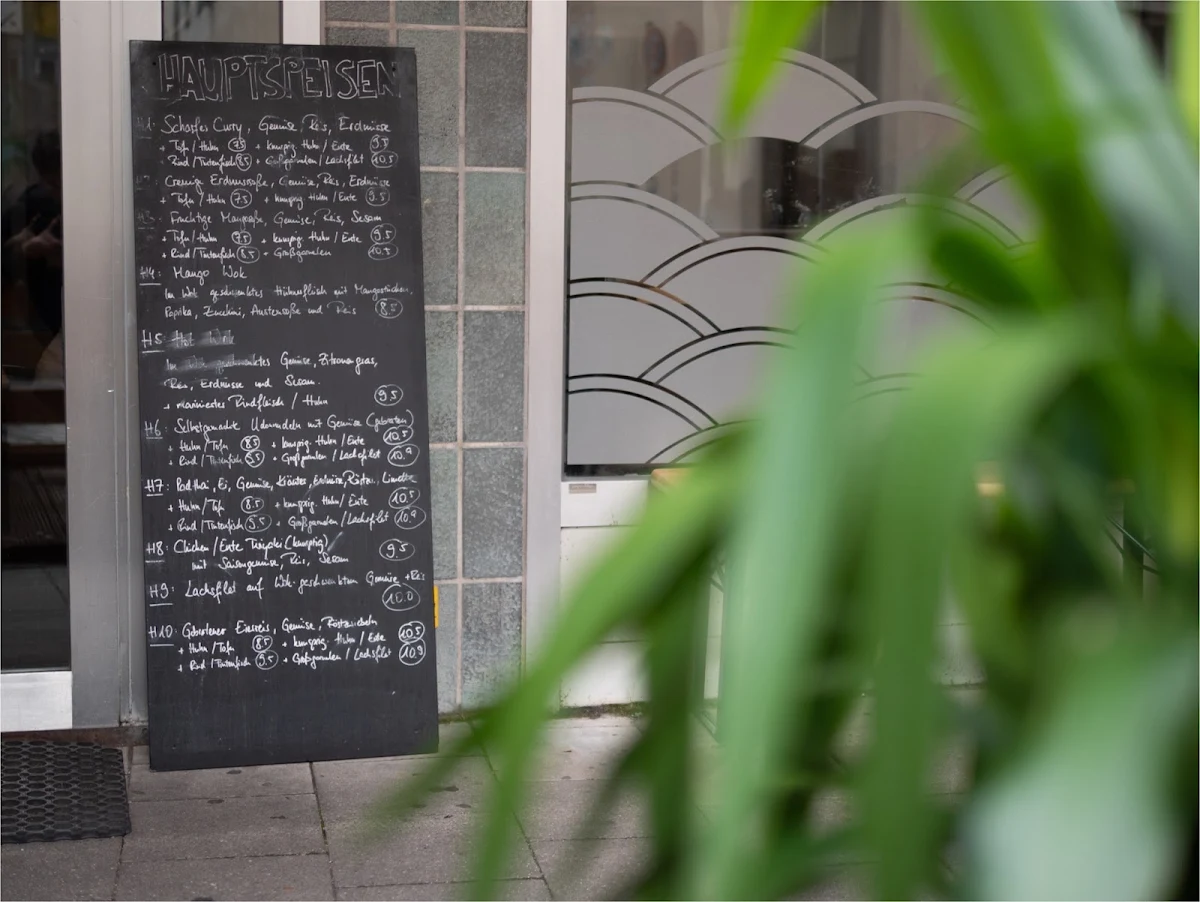 HAUPTSPEISEN
H1: Scharfes Curry, Gemüse, Reis, Erdnüsse
+ Tofu / Huhn 7.5 + knusprig. Huhn / Ente 9.5
+ Rind / Tintenfisch 8.5 + Großgarnelen / Lachsfilet 10.5
Cremige Erdnusssoße, Gemüse, Reis, Erdnüsse
+ Tofu / Huhn 7.5 + knusprig. Huhn / Ente 9.5
H3: Fruchtige Mangosoße, Gemüse, Reis, Sesam
+ Tofu / Huhn 7.5 + knusprig. Huhn / Ente 9.5
+ Rind / Tintenfisch 8.5 + Großgarnelen 10.5
H4: Mango Wok
Im Wok geschwenktes Hühnerfleisch mit Mangostücken,
Paprika, Zucchini, Austernsoße und Reis
H5:
Im Gemüse, Zitronengras,
Reis, Erdnüsse und Sesam.
+ mariniertes Rindfleisch / Huhn 9.5
H6: Selbstgemachte Udonnudeln mit Gemüse (gebraten)
+ Huhn / Tofu 8.5 + knusprig. Huhn / Ente 10.5
+ Rind / Tintenfisch 9.5 + Großgarnelen / Lachsfilet 10.9
H7: Pad thai, Ei, Gemüse, Erdnüsse, Limette
+ Huhn / Tofu 8.5 + knusprig. Huhn / Ente 10.5
+ Rind / Tintenfisch 9.5 + Großgarnelen / Lachsfilet 10.9
H8: Chicken / Ente Teriyaki (knusprig) 9.5
mit Saisongemüse, Reis, Sesam
H9: Lachsfilet auf Wok-geschwenktem Gemüse + Reis
10.0
H10: Gebratener Eierreis, Gemüse, Röstzwiebeln
+ Huhn / Tofu 8.5 + knusprig. Huhn / Ente 10.5
+ Rind / Tintenfisch 9.5 + Großgarnelen / Lachsfilet 10.9